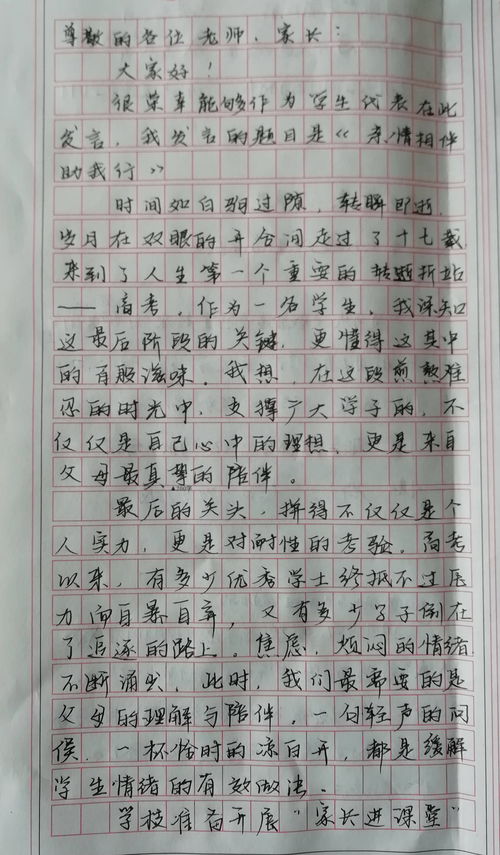 尊敬的各位老师、家长：
大家好！
很荣幸能够作为学生代表在此
发言，我发言的题目是《亲情相伴
助我行》
时间如白驹过隙，转瞬即逝，
岁月在双眼的开合间走过了十七载
来到了人生第一个重要的转折站
——高考，作为一名学生，我深知
这最后阶段的关键，更懂得这其中
的百般滋味。我想，在这段煎熬难
忍的时光中，支撑广大学子的，不
仅仅是自己心中的理想，更是来自
父母最真挚的陪伴。
最后的关头，拼得不仅仅是个
人实力，更是对耐性的考验。高考
以来，有多少优秀学士终抵不过压
力而自暴自弃，又有多少学子倒在
了追逐的路上。焦虑，烦闷的情绪
不断涌出，此时，我们最需要的是
父母的理解与陪伴，一句轻声的问
候，一杯恰时的凉白开，都是缓解
学生情绪的有效做法。
学校准备开展“家长进课堂”